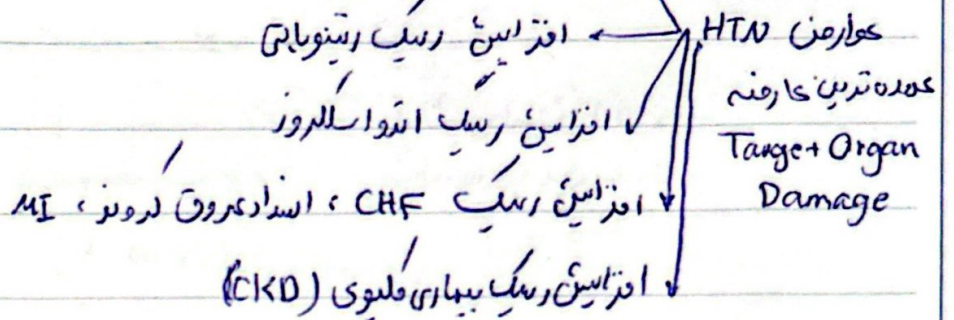 عوارض HTN
عمده ترین عارضه
Target Organ
Damage
افزایش ریسک رتینوپاتی
افزایش ریسک اترواسکلروز
افزایش ریسک CHF ، انسداد عروق کرونر ، MI
افزایش ریسک بیماری کلیوی (CKD)